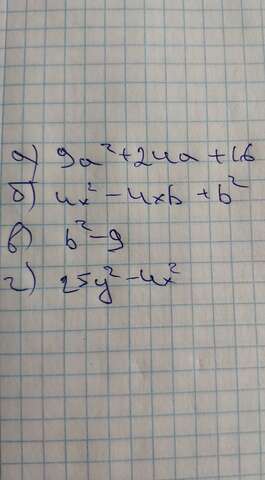 а) 9a²+24a+16
б) 4x²-4xb+b²
в) b²-9
г) 25y²-4x²